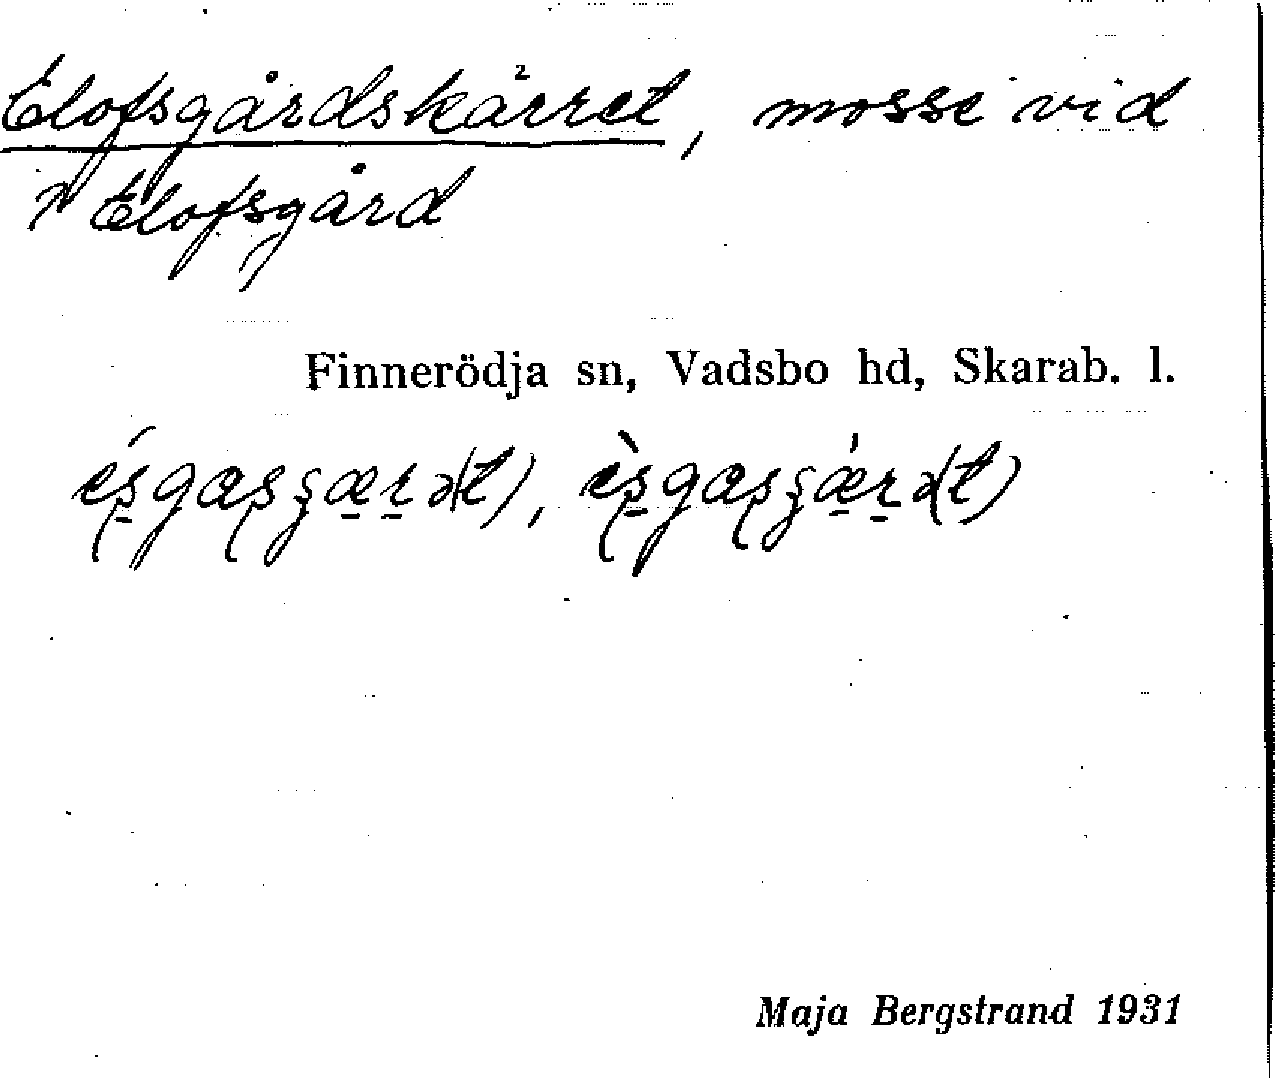 Elofsgårdskärret, mosse vid
N Elofsgård
Finnerödja sn, Vadsbo hd, Skarab. l.
Maja Bergstrand 1931